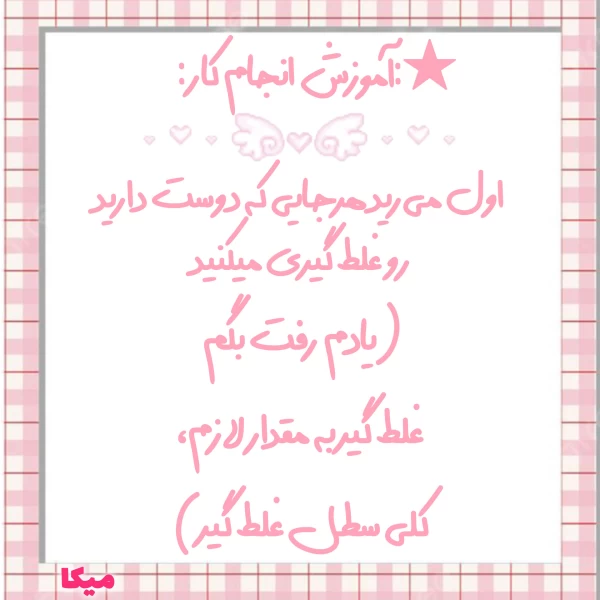 :آموزش انجام کار:
اول می رید هر جایی که دوست دارید
رو غلط گیری میکنید
(یادم رفت بگم
غلط گیر به مقدار لازم،
کلی سطل غلط گیر)
میکا